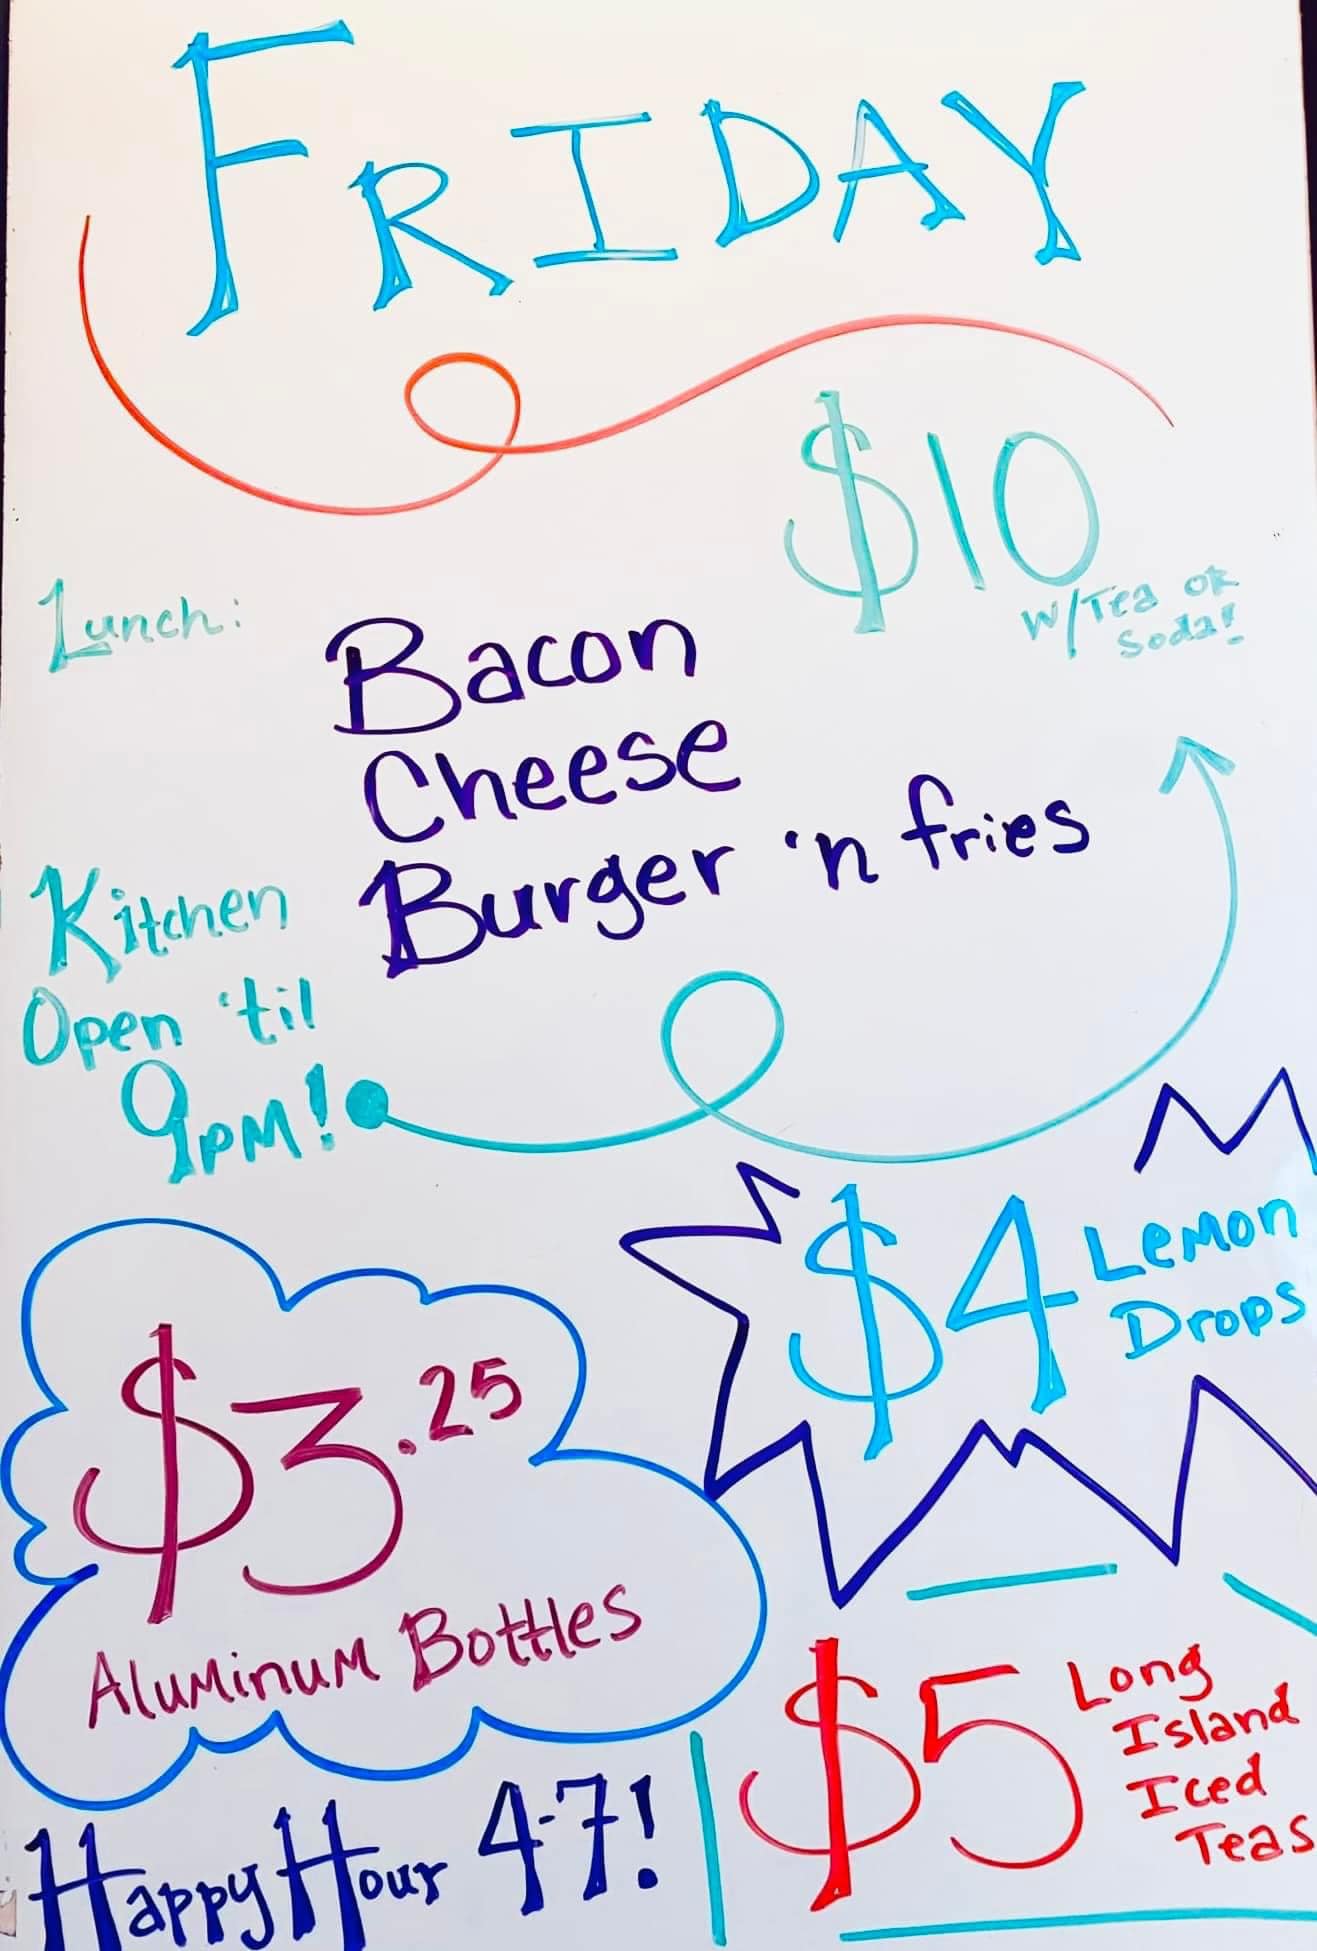 FRIDAY
$10
W/Tea or
Soda!
Lunch:
Bacon
Cheese
Burger 'n fries
Kitchen
Open 'til
9PM!
$4 Lemon
Drops
$3.25
Aluminum Bottles
$5 Long
Island
Iced
Teas
Happy Hour 4-7!